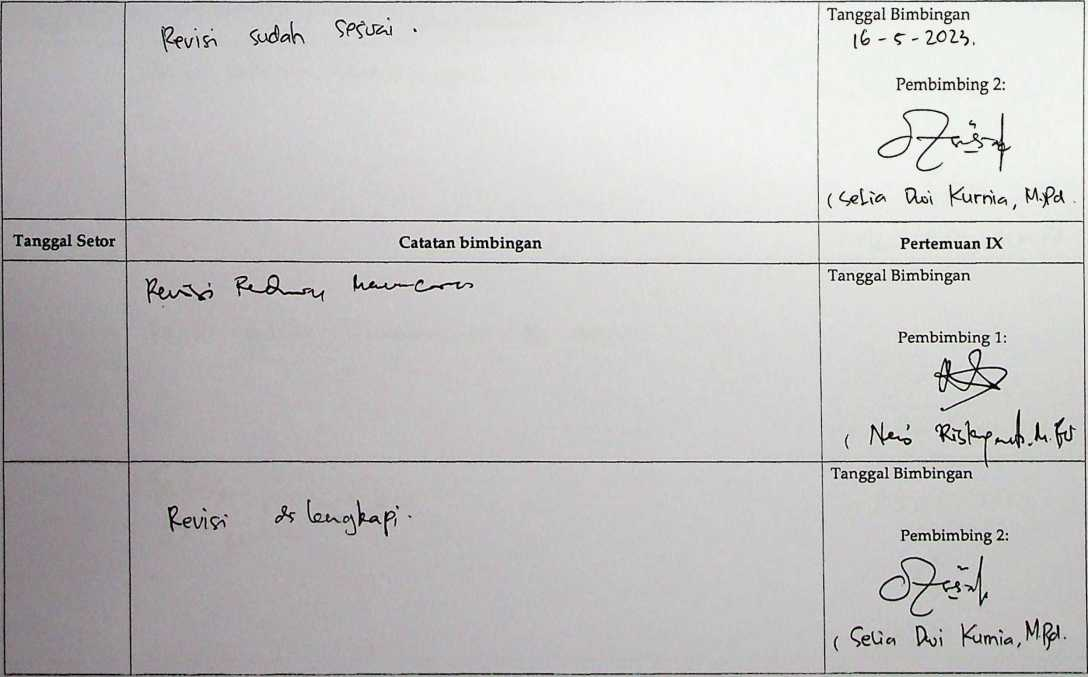 Revisi sudah sesuai.
Tanggal Bimbingan
16-5-2023.
Pembimbing 2:
(Selia Dwi Kurnia, M.Pd.
Tanggal Setor
Catatan bimbingan
Pertemuan IX
Revisi
Tanggal Bimbingan
Pembimbing 1:
(
Revisi di lengkapi.
Tanggal Bimbingan
Pembimbing 2:
(Selia Dwi Kurnia, M.Pd.